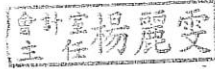 會計室
主任楊麗雯